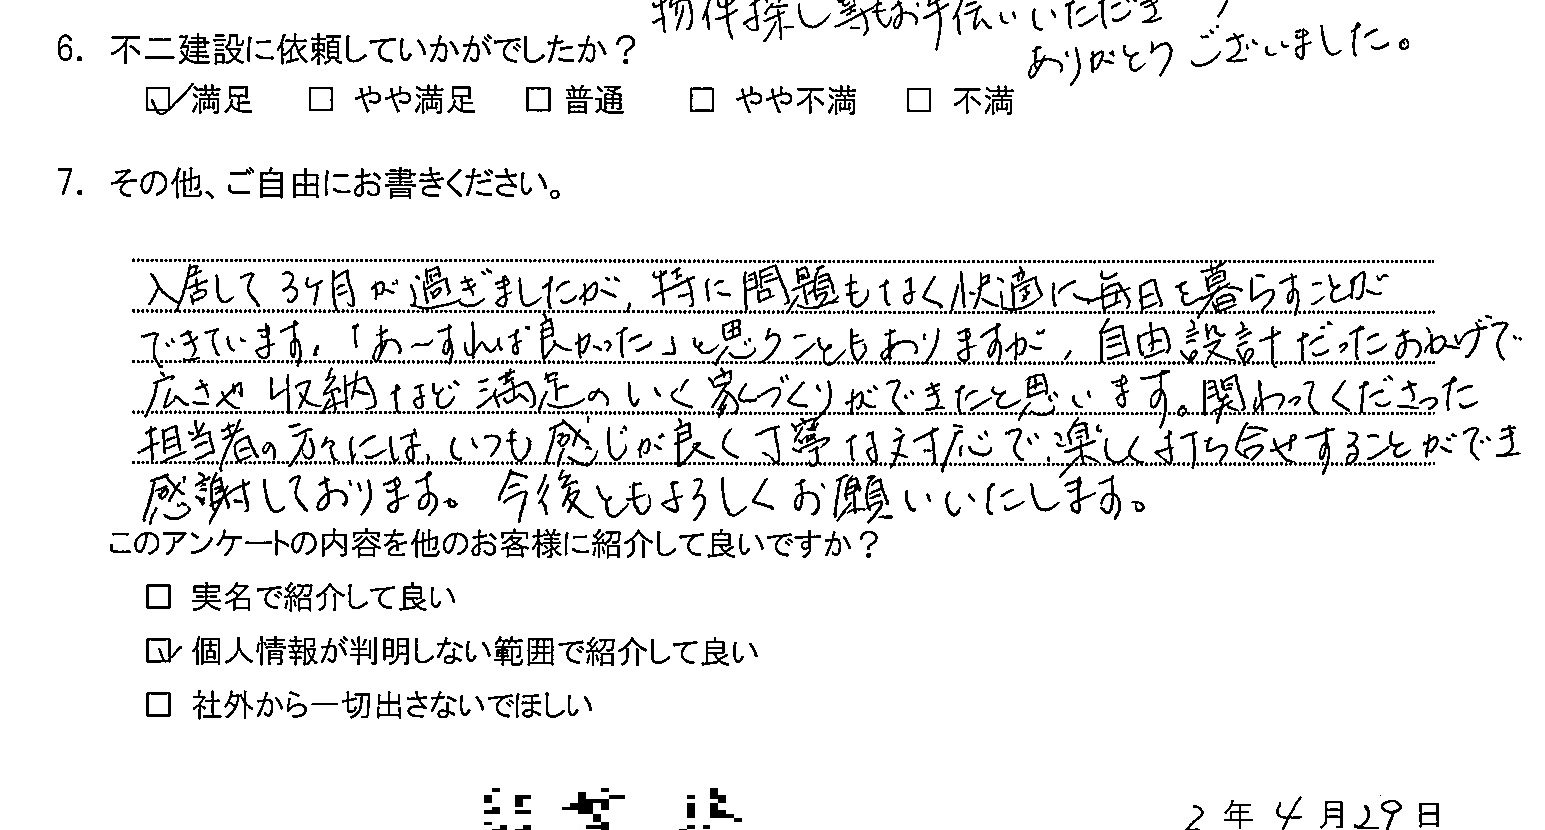 物件探し等もお手伝いいただき
ありがとうございました。
6. 不二建設に依頼していかがでしたか？
☑満足 □ やや満足 □ 普通 □ やや不満 □ 不満
7. その他、ご自由にお書きください。
入居して3ヶ月が過ぎましたが、特に問題もなく快適に毎日を暮らすことが
できています。「あ～すれば良かった」と思うこともありますが、自由設計だったおかげで
広さや収納など満足のいく家づくりができたと思います。関わってくださった
担当者の方々には、いつも感じが良く丁寧な対応で、楽しく打ち合せすることができ
感謝しております。今後ともよろしくお願いいたします。
このアンケートの内容を他のお客様に紹介して良いですか？
□ 実名で紹介して良い
☑ 個人情報が判明しない範囲で紹介して良い
□ 社外から一切出さないでほしい
2 年 4 月 29 日